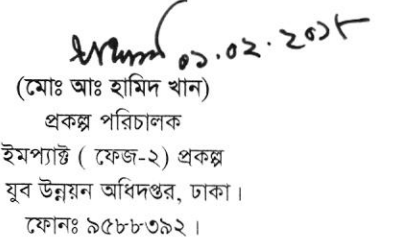 ০১.০২.২০১৮
(মোঃ আঃ হামিদ খান)
প্রকল্প পরিচালক
ইমপ্যাক্ট ( ফেজ-২) প্রকল্প
যুব উন্নয়ন অধিদপ্তর, ঢাকা।
ফোনঃ ৯৫৮৮৩৯২।